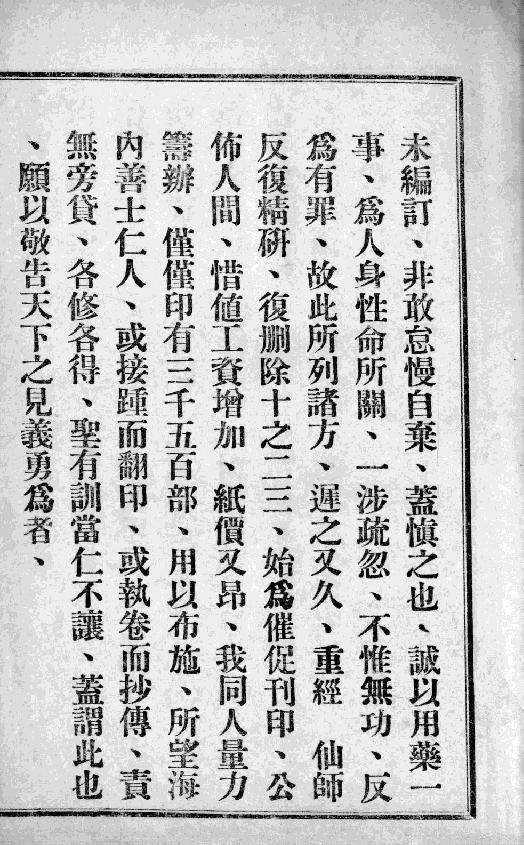 未編訂、非敢怠慢自棄、蓋愼之也、誠以用藥一
事、爲人身性命所關、一涉疏忽、不惟無功、反
爲有罪、故此所列諸方、遲之又久、重經　仙師
反復精硏、復刪除十之二三、始爲催促刊印、公
佈人間、惜値工資增加、紙價又昂、我同人量力
籌辦、僅僅印有三千五百部、用以布施、所望海
內善士仁人、或接踵而翻印、或執卷而抄傳、責
無旁貸、各修各得、聖有訓當仁不讓、蓋謂此也
、願以敬告天下之見義勇爲者、